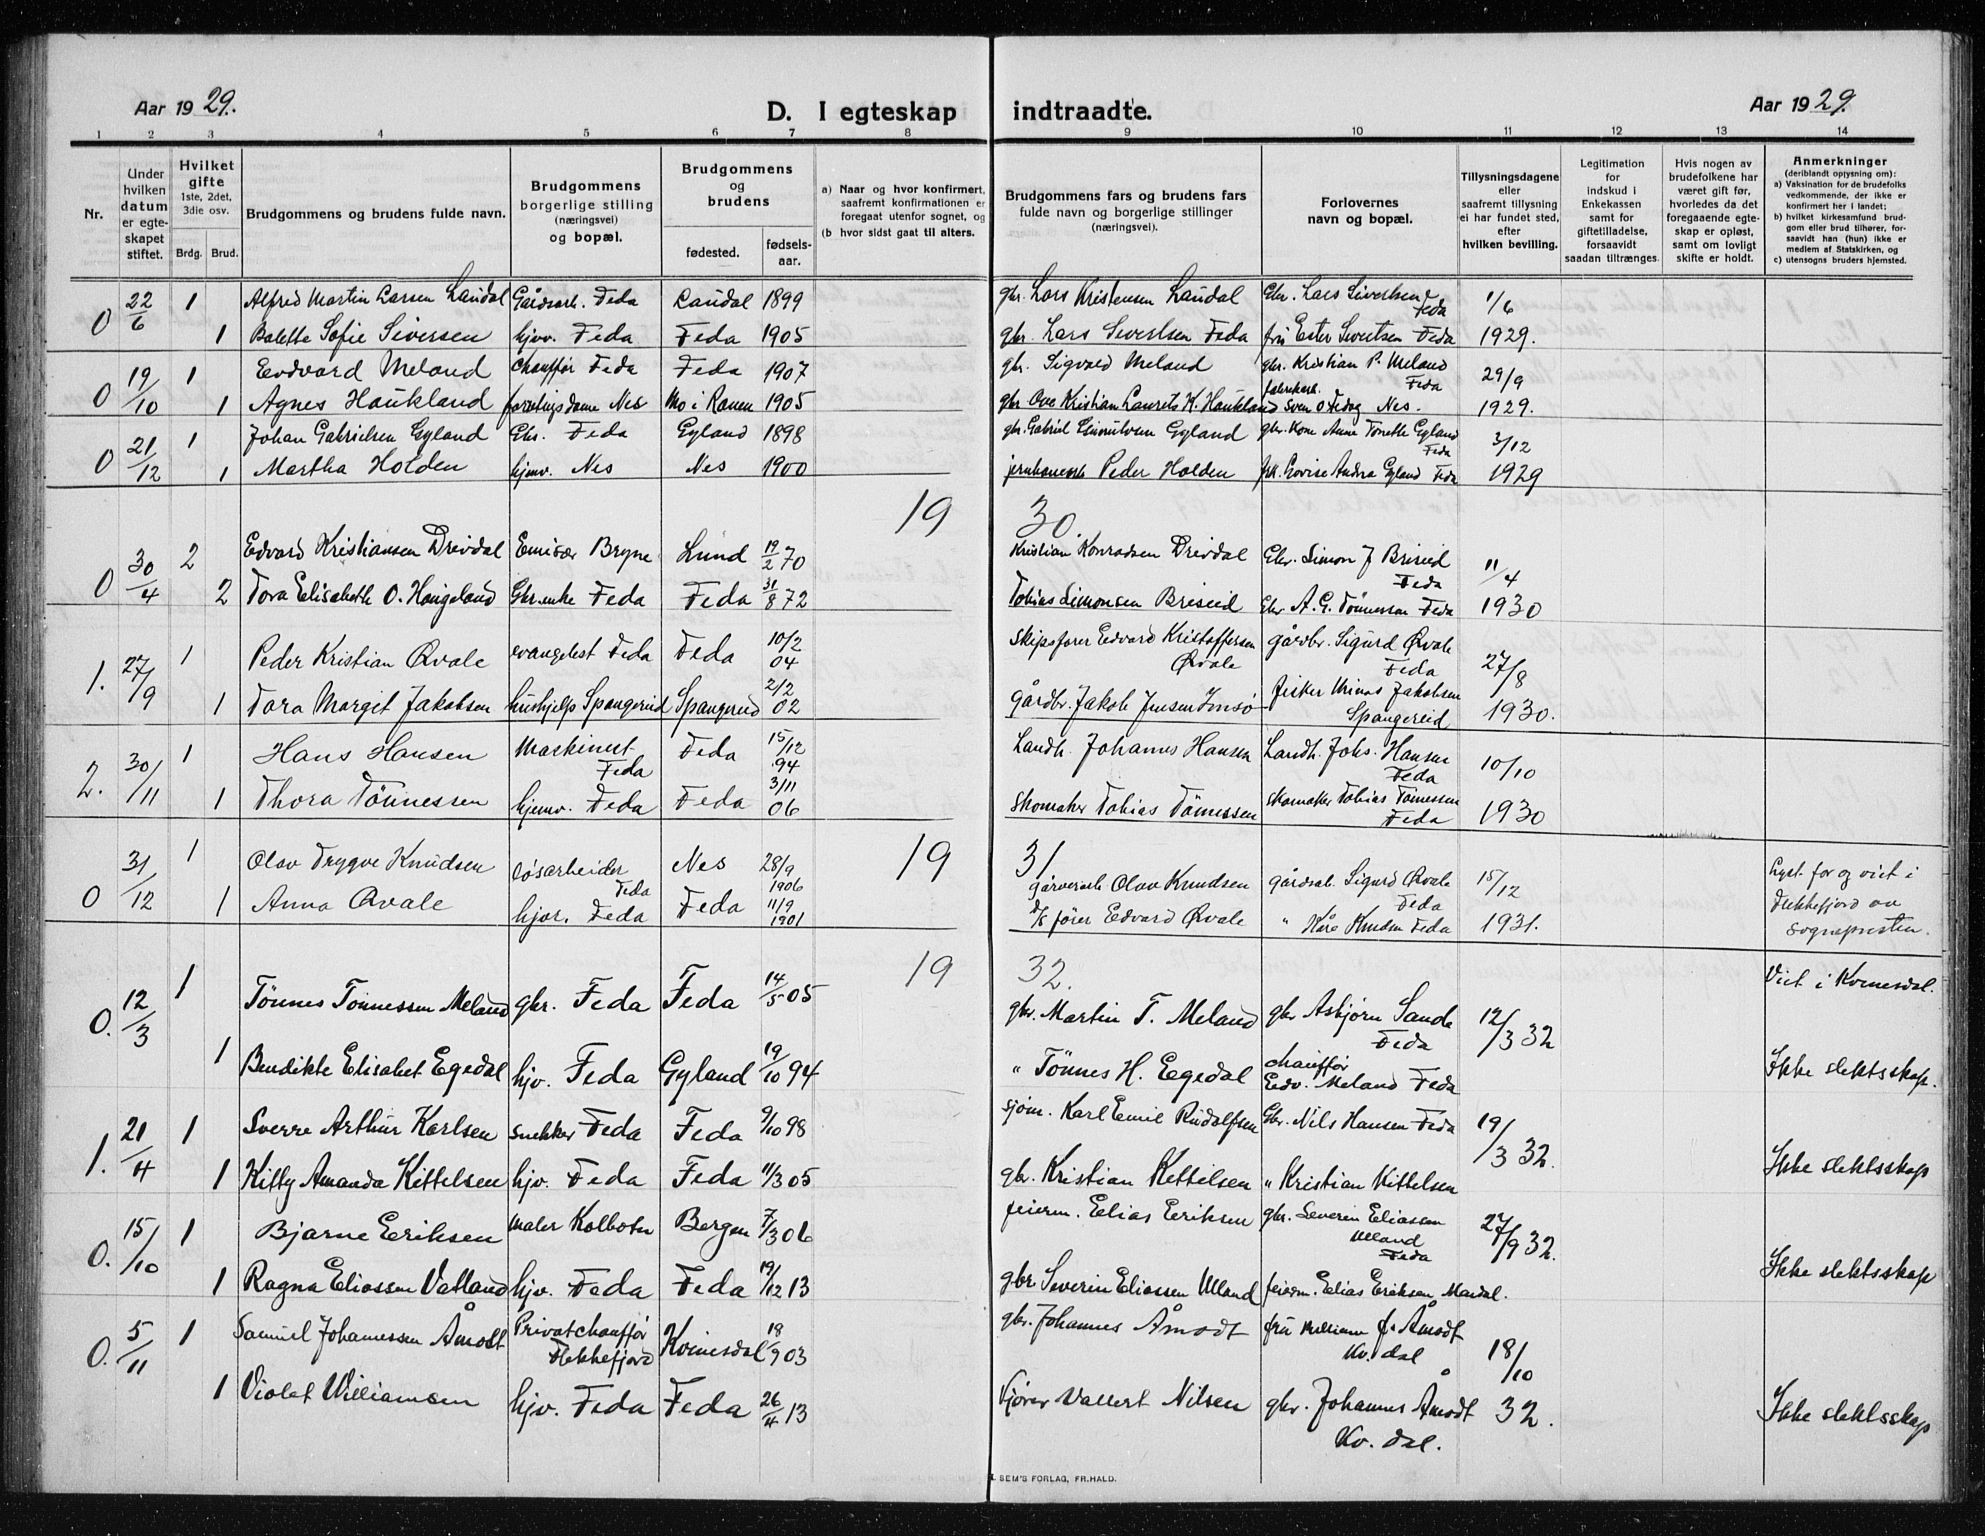 Aar 1929.
D. I egteskap indtraadte.
Aar 1929.
1 2 3 4 5 6 7 8 9 10 11 12 13 14
Nr.
Under hvilken datum er egteskapet stiftet.
Hvilket gifte 1ste, 2det, 3die osv.
Brdg. Brud.
Brudgommens og brudens fulde navn.
Brudgommens borgerlige stilling (næringsvei) og bopæl.
Brudgommens og brudens
fødested. fødsels-aar.
a) Naar og hvor konfirmert, saafremt konfirmationen er foregaat utenfor sognet, og
(b hvor sidst gaat til alters.
Brudgommens fars og brudens fars fulde navn og borgerlige stillinger (næringsvei).
Forlovernes navn og bopæl.
Tillysningsdagene eller saafremt tillysning ei har fundet sted, efter hvilken bevilling.
Legitimation for indskud i Enkekassen samt for giftetilladelse, forsaavidt saadan tiltrænges.
Hvis nogen av brudefolkene har været gift før, hvorledes da det foregaaende egteskap er opløst, samt om lovligt skifte er holdt.
Anmerkninger (deriblandt oplysning om):
a) Vaksination for de brudefolks vedkommende, der ikke er konfirmert her i landet;
b) hvilket kirkesamfund brudgom eller brud tilhører, forsaavidt han (hun) ikke er medlem af Statskirken, og
c) utensogns bruders hjemsted.
0 22/6 1 Alfred Martin Larsen Laudal Gårdsarb. Feda Laudal 1899 gbr. Lars Kristensen Laudal Gbr. Lars Sivertsen Feda 1/6
1 Bolette Sofie Siversen hjv. Feda Feda 1905 gbr. Lars Sivertsen Feda frú Ester Sivertsen Feda 1929.
0 19/10 1 Edvard Meland Chauffør Feda Feda 1907 gbr. Sigvald Meland gbr. Kristian P. Meland Feda 29/9
1 Agnes Haukland Nes Mo i Ranen 1905 gbr Ove Kristian Laurets K. Haukland fabrikarb. Sven O Fedog Nes. 1929.
0 21/12 1 Johan Gabrielsen Gyland Gbr. Feda Gyland 1898 gbr. Gabriel Gyland gbr. Kone Anne Tonette Gyland Feda 3/12
1 Martha Holden hjemv. Nes Nes 1900 Peder Holden frk. Lovise Andrea Gyland Feda 1929
19 30.
0 30/4 2 Edvard Kristiansen Dreivdal Emisær Bryne Lund 19/2 70 Kristian Konradsen Dreivdal Gbr. Simon J Briseid Feda 11/4
2 Tora Elisabeth O. Haugeland Gbr.enke Feda Feda 31/8 72 Tobias Simonsen Briseid Gbr A. G. Tönnessen Feda 1930
1. 27/9 1 Peder Kristian Øvale evangelist Feda Feda 10/2 04 Skipsfører Edvard Kristoffersen Øvale gårdbr. Sigurd Øvale Feda 27/8
1 Tora Margit Jakobsen hushjelp Spangereid Spangereid 2/2 02 gårdbr. Jakob Jensen fisker Jakobsen Spangereid 1930.
2. 30/11 1 Hans Hansen Maskinist Feda Feda 15/12 94 Landh. Johannes Hansen Landh. Johs. Hansen Feda 10/10
1 Thora Tönnessen hjemv. Feda Feda 3/11 06 Skomaker Tobias Tönnessen skomaker Tobias Tönnessen Feda 1930
19 31
0 31/12 1 Olav Trygve Knudsen løsarbeider Feda Nes 28/9 1906 garveriarb Olav Knudsen gårdsab. Sigurd Øvale Feda 15/12 Lyst for og viet i
1 Anna Øvale hjv. Feda Feda 11/9 1901 d/s fører Edvard Øvale " Kåre Knudsen Feda 1931. Flekkefjord av sognepresten.
19 32.
0. 12/3 1 Tönnes Tönnessen Meland gbr. Feda Feda 14/5 05 gbr. Martin T. Meland gbr Asbjörn Sande Feda 12/3 32 Viet i Kvinesdal.
1 Bendikte Elisabet Egedal hjv. Feda Gyland 19/10 94 " Tönnes H. Egedal chauffør Edv. Meland Feda Ikke slektsskap.
1. 21/4 1 Sverre Arthur Karlsen snekker Feda Feda 9/10 98 sjøm. Karl Emil Rudolfsen Gbr. Nils Hansen Feda 19/3 32.
1 Kitty Amanda Kittelsen hjv. Feda Feda 11/3 05 gbr. Kristian Kettilsen " Kristian Kittelsen Ikke slektsskap
0. 15/10 1 Bjarne Eriksen maler Kolbotn Bergen 7/3 06 feierm. Elias Eriksen gbr. Severin Eliassen Uland Feda 27/9 32.
1 Ragna Eliassen Vatland hjv. Feda Feda 19/12 13 gbr Severin Eliassen Uland feierm. Elias Eriksen Mandal. Ikke slektsskap
0. 5/11 1 Samuel Johannessen Åmodt Privatchauffør Flekkefjord Kvinesdal 18/9 03 gbr. Johannes Åmodt frú J. Åmodt Kv. dal 18/10
1 Violet Williamsen hjv. Feda Feda 26/4 13 Nilsen gbr. Johannes Åmodt Kv. dal. 32. Ikke slektsskap
SEM'S FORLAG, FR.HALD.